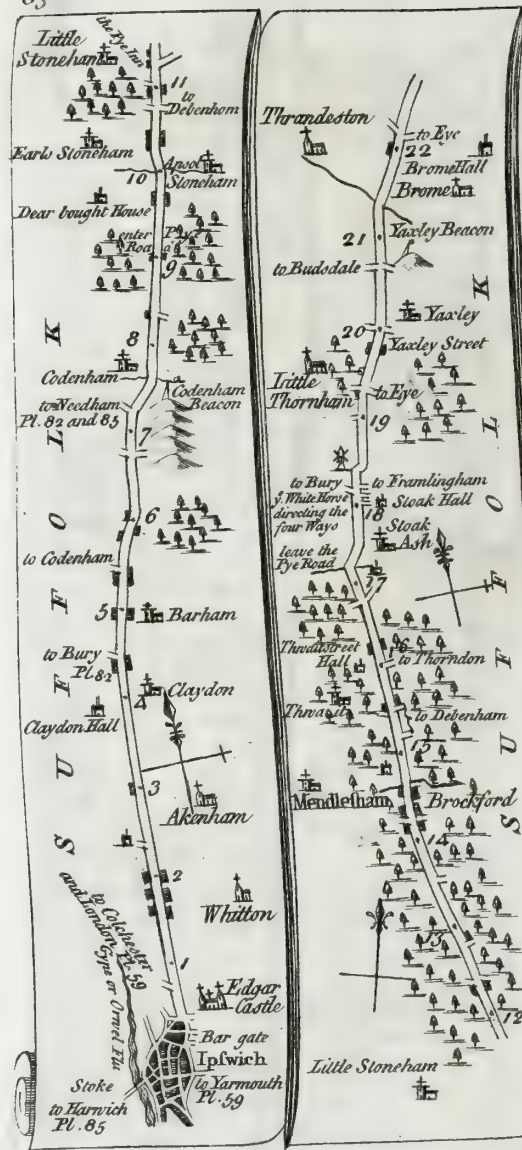 Little
Stoneham
the Pye Inn
11
to
Debenhom
Earls Stoneham
10
Ansol
Stoneham
Dear bought House
enter Pye
Roa d
9
8
Codenham
Codenham
Beacon
to Needham
Pl. 82 and 85
7
6
to Codenham
5
Barham
to Bury
Pl. 82
4
Claydon
Claydon Hall
3
Akenham
2
Whitton
to Colchester
and London Pl. 59
Gype or Orwel Flu
1
Edgar
Castle
Bar gate
Ipſwich
Stoke
to Harwich
Pl. 85
to Yarmouth
Pl. 59
SUFFOLK
Thrandeston
to Eye
22
Brome Hall
Brome
21
Yaxley Beacon
to Budsdale
Yaxley
20
Yaxley Street
Little
Thornham
to Eye
19
to Bury
ẏ. White Horse
directing the
four Ways
to Framlingham
Sloak Hall
18
Sloak
Ash
leave the
Pye Road
17
Thwaitstreet
Hall
16
to Thorndon
Thwait
to Debenham
15
Mendleſham
Brockford
14
13
12
Little Stoneham
SUFFOLK